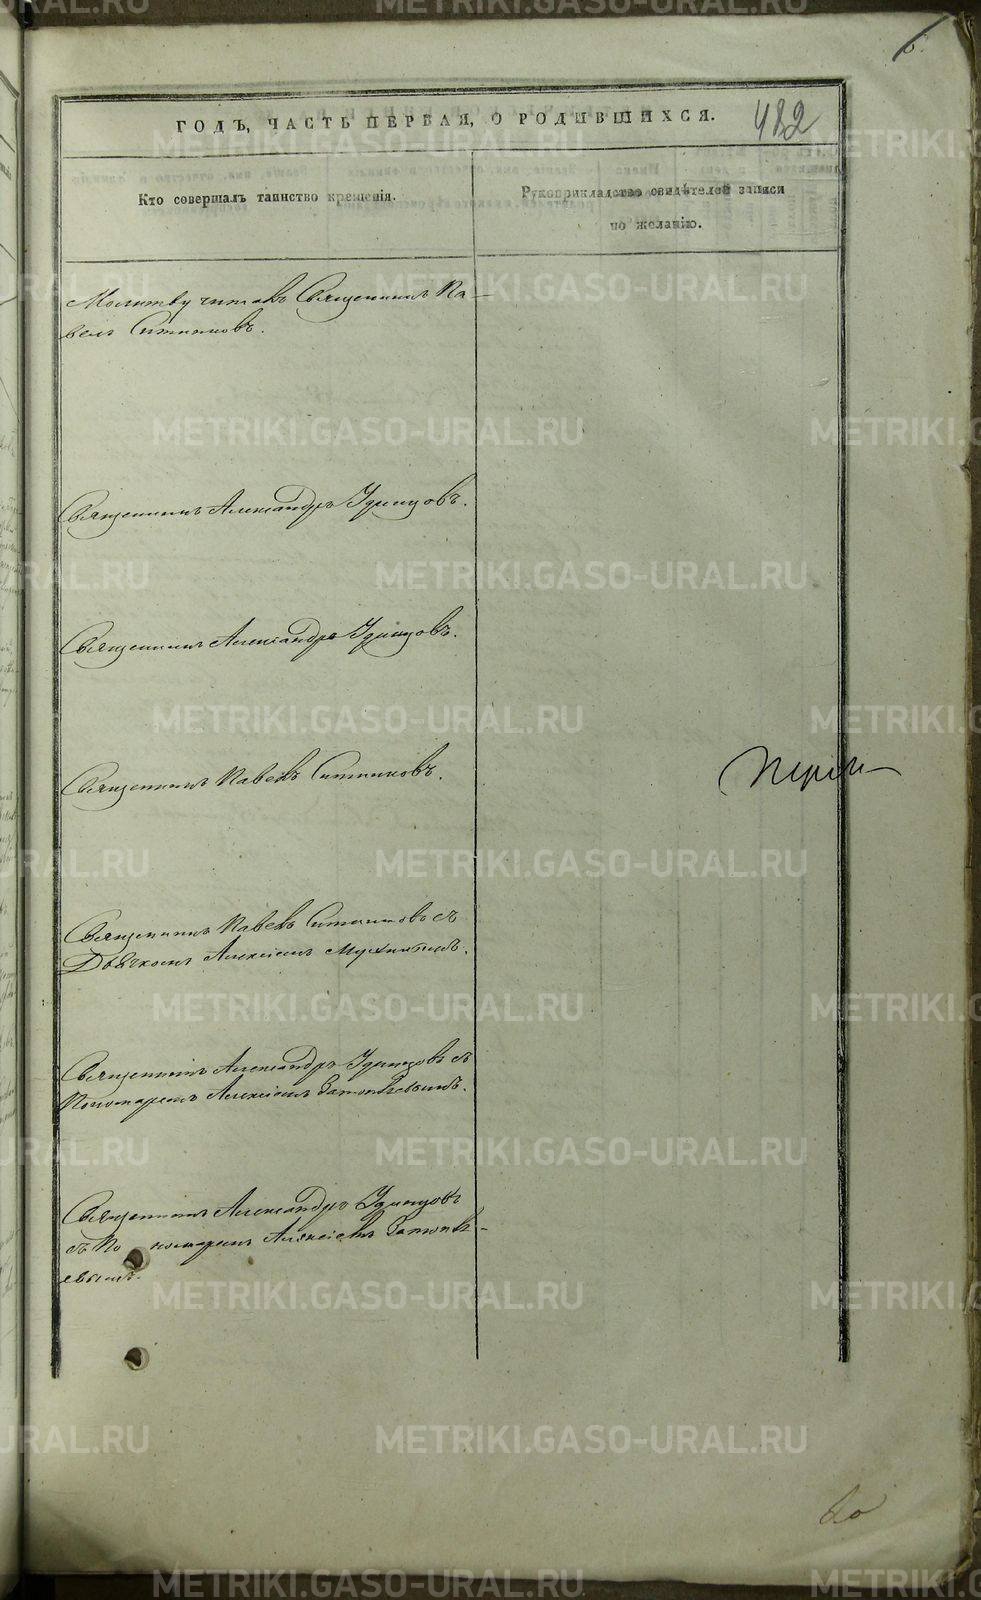 ГОДЪ, ЧАСТЬ ПЕРВАЯ, О РОДИВШИХСЯ.
482
Кто совершалъ таинство крещенія.
Рукоприкладство свидѣтелей записи
по желанію.
Молитву читалъ Священникъ Па-
велъ Ситниковъ.
Священникъ Александръ Удинцовъ.
Священникъ Александръ Удинцовъ.
Священникъ Павелъ Ситниковъ.
Священникъ Павелъ Ситниковъ съ
Дьячкомъ Алексіемъ
Священникъ Александръ Удинцовъ съ
Пономаремъ Алексіемъ
Священникъ Александръ Удинцовъ
съ По номаремъ Алексіемъ
METRIKI.GASO-URAL.RU